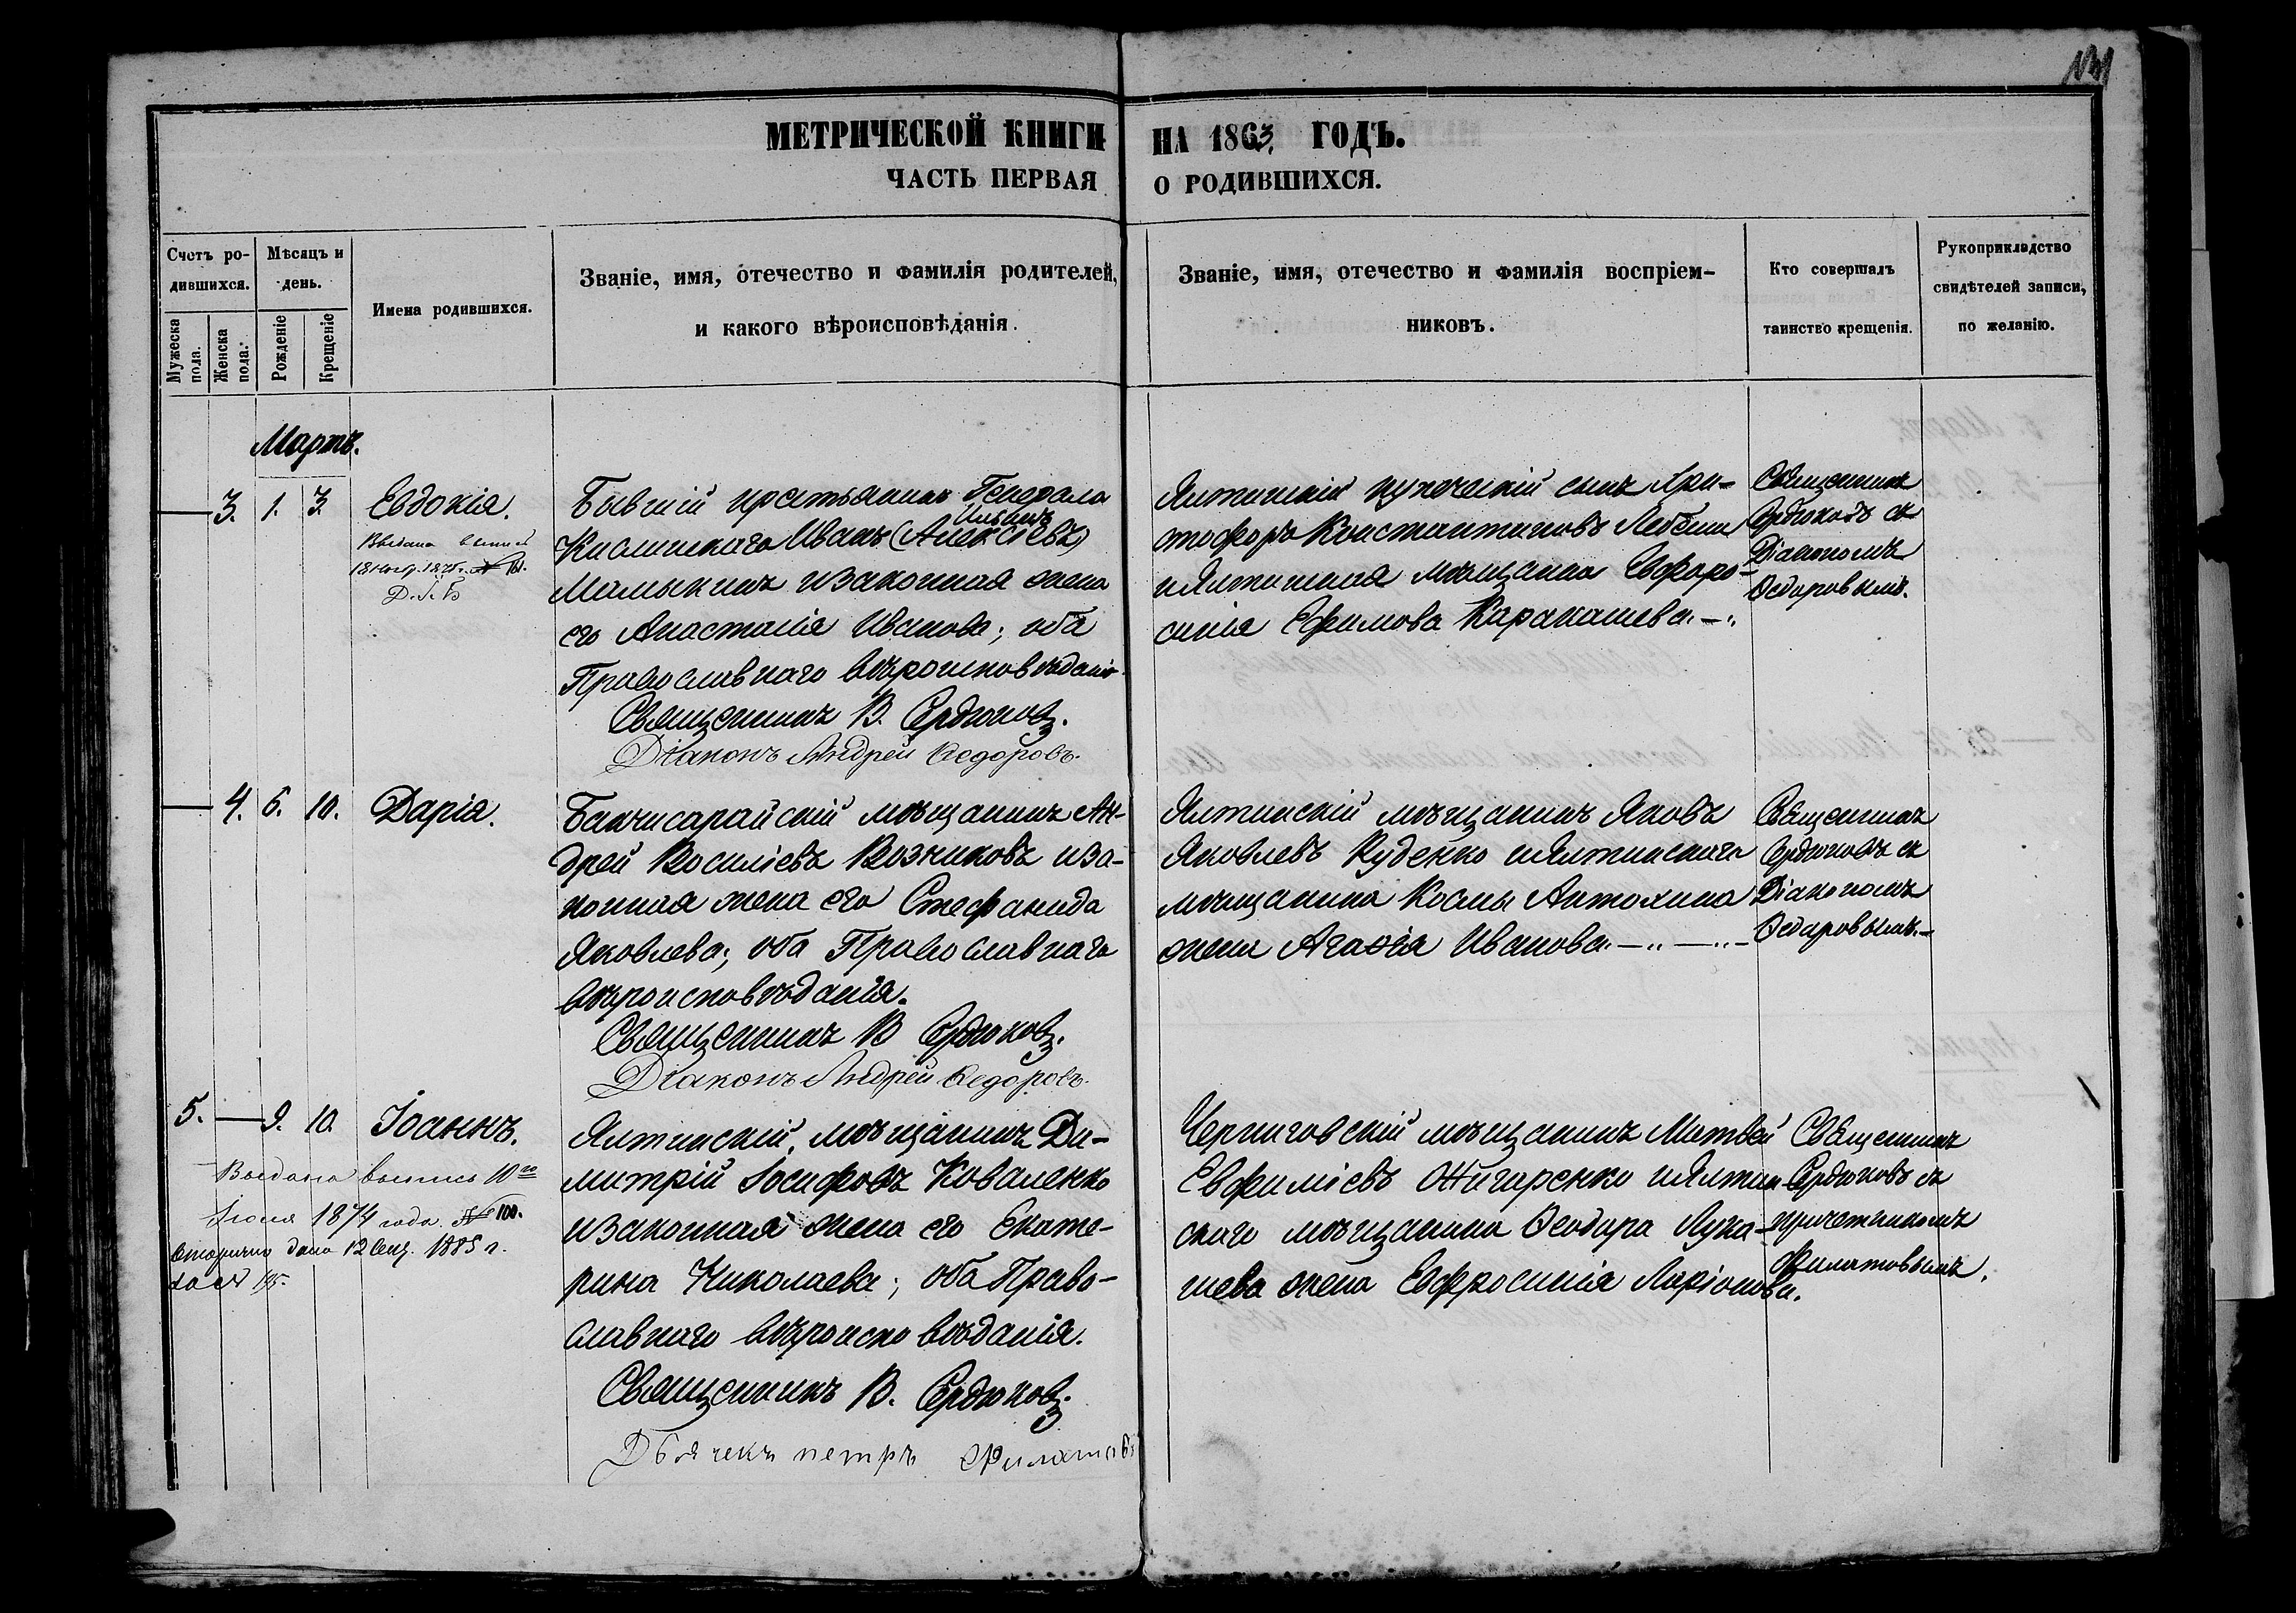 МЕТРИЧЕСКОЙ КНИГИ НА 1863 ГОДЪ.
ЧАСТЬ ПЕРВАЯ О РОДИВШИХСЯ.
Счетъ ро-
дившихся.
Мужеска
пола.
Женска
пола.
Мѣсяцъ и
день.
Рожденіе
Крещеніе
Имена родившихся.
Званіе, имя, отечество и фамилія родителей,
и какого вѣроисповѣданія.
Званіе, имя, отечество и фамилія воспріем-
никовъ.
Кто совершалъ
таинство крещенія.
Рукоприкладство
свидѣтелей записи,
по желанію.
Мартъ.
3. 1. 3. Евдокія.
Выдана выпись
Бывшій крестьянинъ Генерала
Ильинъ
Иванъ (Алексіевъ)
Мамыкинъ и законная жена
его Анастасія Иванова; оба
Православнаго вѣроисповѣданія.
Священникъ В. Сердюковъ.
Діаконъ Андрей Ѳедоровъ.
Ялтинскій купеческій сынъ Хри-
стофоръ Константиновъ
и Ялтинская мѣщанка Евфро-
синія Ефимова Каракашева.
Священникъ
Сердюковъ съ
Діакономъ
Ѳедоровымъ.
4. 6. 10. Дарія.
Бакчисарайскій мѣщанинъ Ан-
дрей Василіевъ Возниковъ и за-
конная жена его Стефанида
Яковлева; оба Православнаго
вѣроисповѣданія.
Священникъ В Сердюковъ.
Діаконъ Андрей Ѳедоровъ.
Ялтинскій мѣщанинъ Яковъ
Яковлевъ Куденко и Ялтинскаго
мѣщанина Космы Антохина
жена Агаѳія Иванова.
Священникъ
Сердюковъ съ
Діакономъ
Ѳедоровымъ.
5. 9. 10. Іоаннъ.
Выдана выпись 10го
Іюня 1874 года. № 100.
Вторично дана 12 Сент. 1885 г.
Ялтинскій мѣщанинъ Ди-
митрій Іосифовъ Коваленко
и законная жена его Екате-
рина Николаева; оба Право-
славнаго вѣроисповѣданія.
Священникъ В. Сердюковъ.
Дьячекъ петръ Филатовъ
Черниговскій мѣщанинъ Матвей
Евфиміевъ Жигаренко и Ялтин-
скаго мѣщанина Ѳеодора Лука-
шева жена Евфросинія Ларіонова.
Священникъ
Сердюковъ съ
причетникомъ
Филатовымъ.